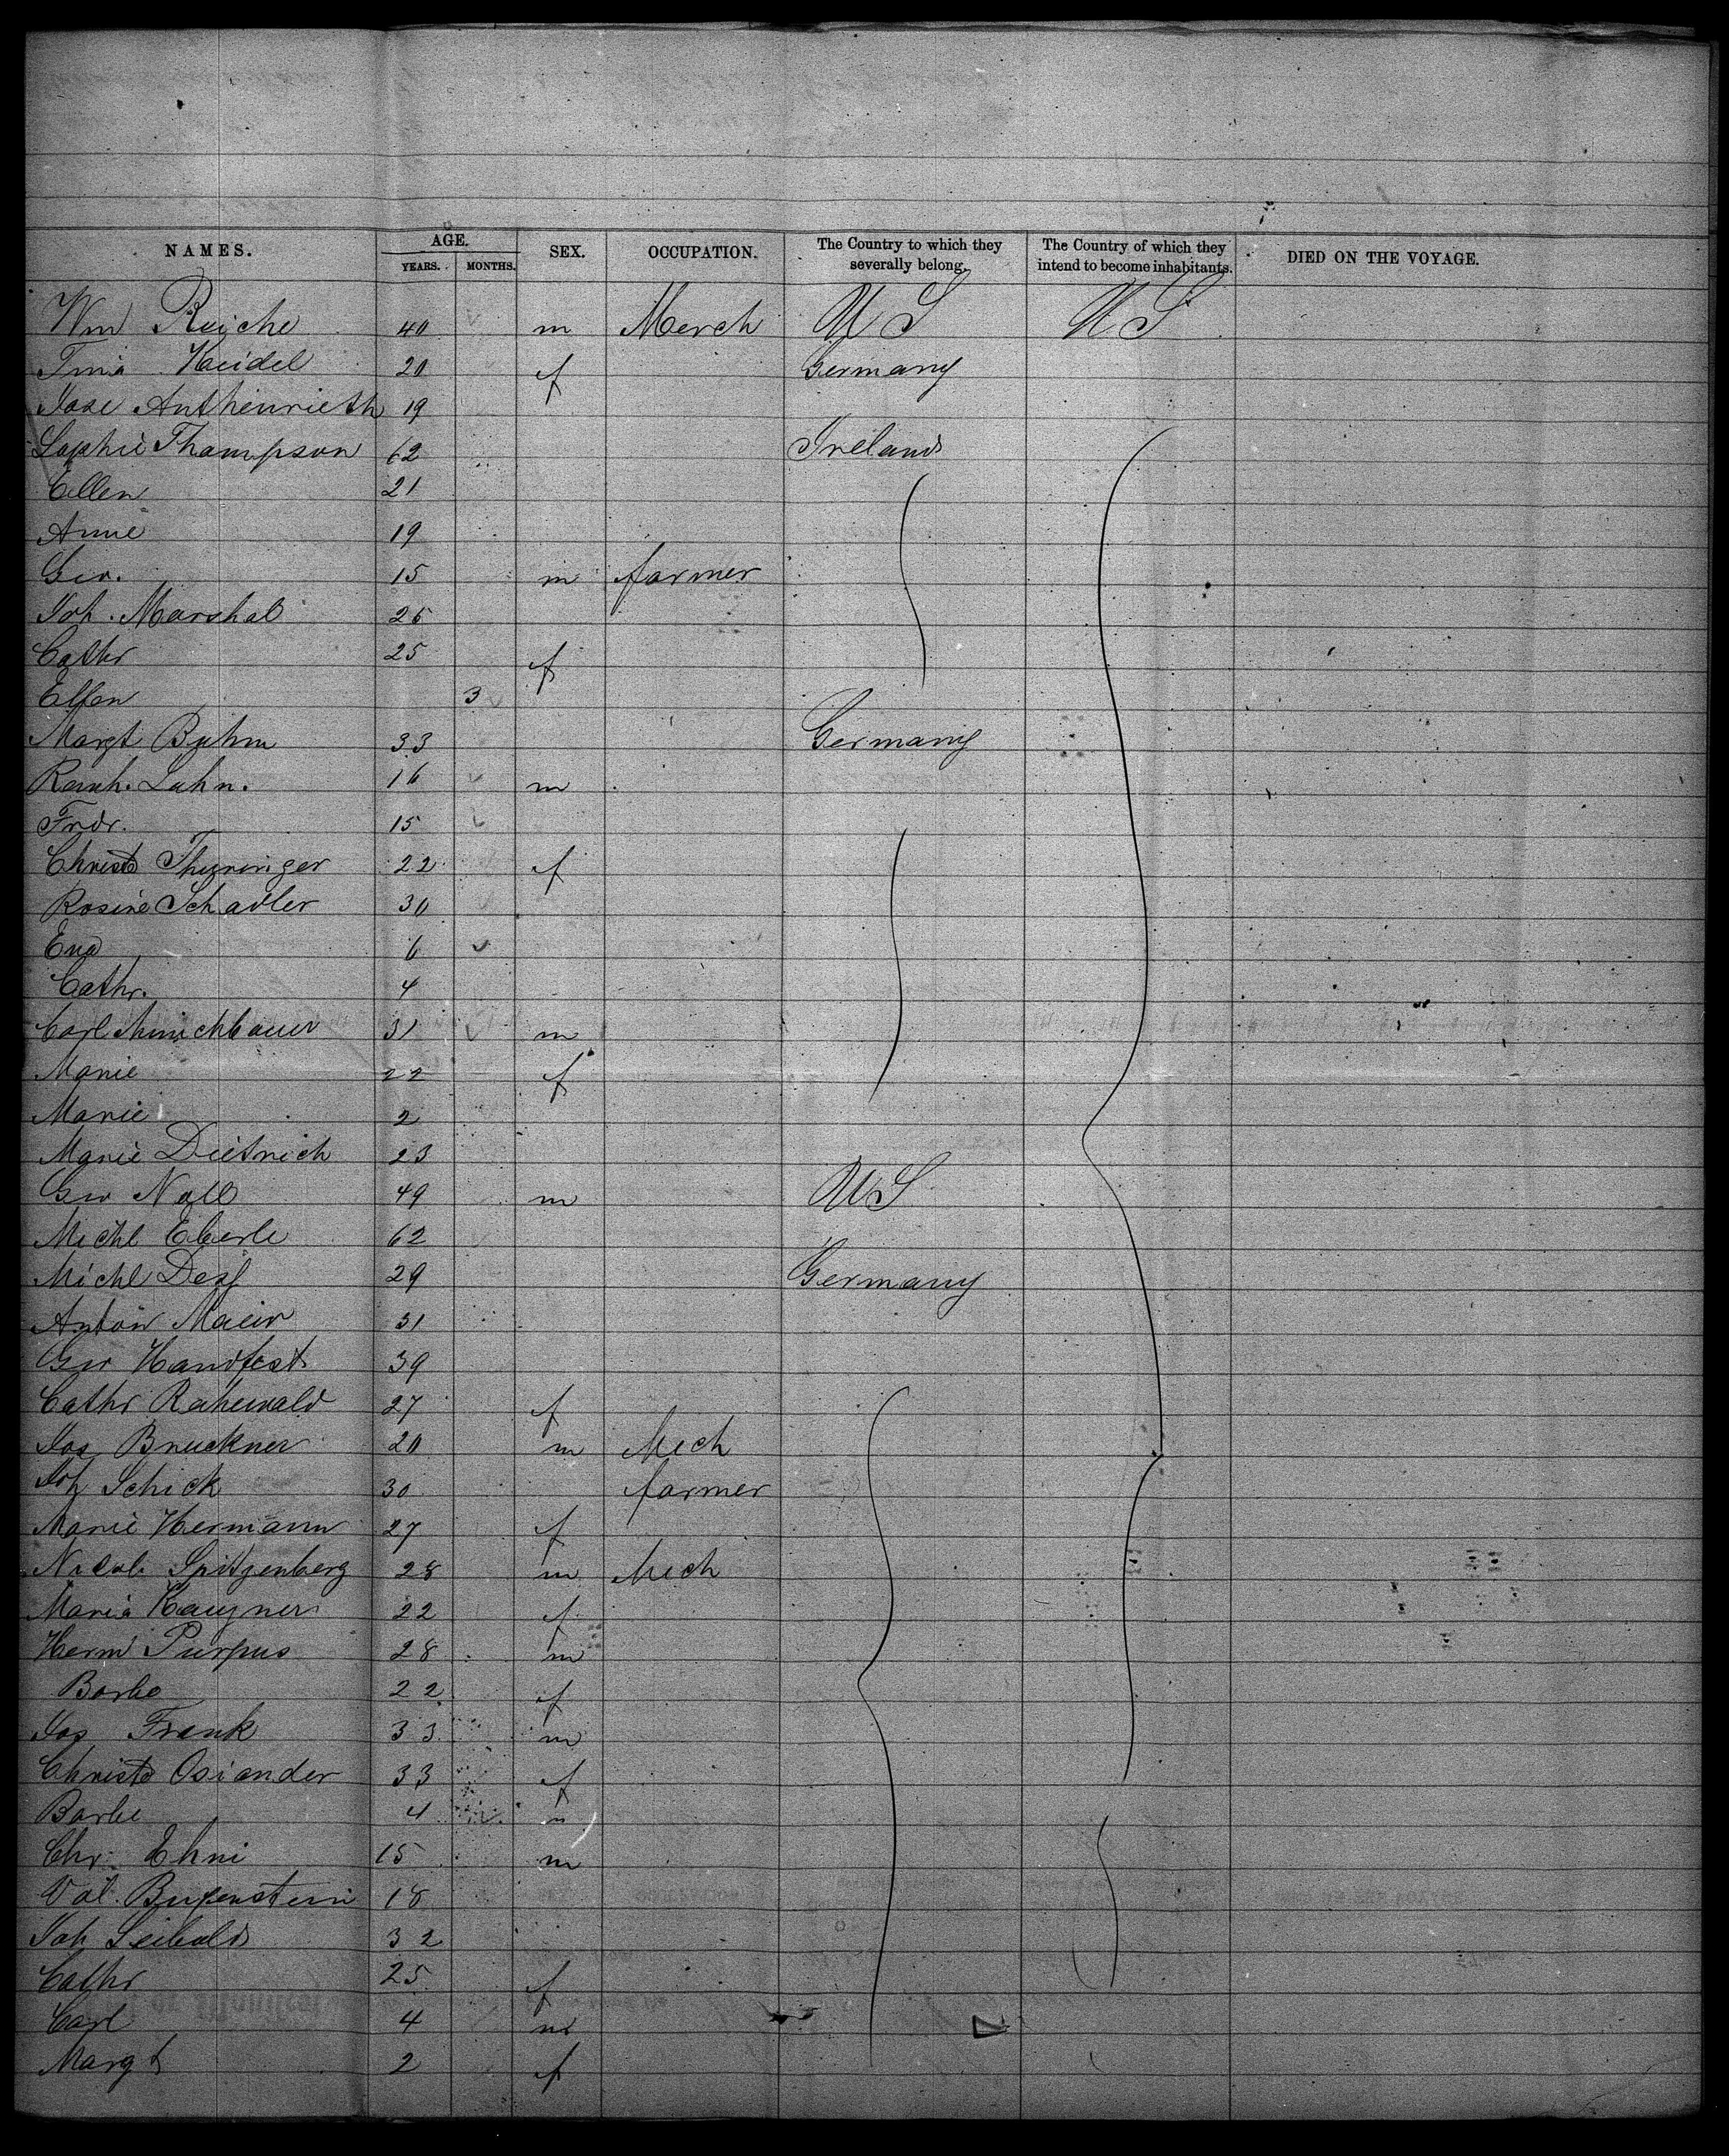 NAMES. AGE. SEX. OCCUPATION. The Country to which they severally belong. The Country of which they intend to become inhabitants. DIED ON THE VOYAGE.
YEARS. MONTHS.
Wm Reiche 40 m Merch U S U S
Keidel 20 f Germany
Authenrieth 19
Sophie Thompson 62 Ireland
Ellen 21
Anne 19
Geo. 15 m farmer
Joh. Marshal 26
Cathr 25 f
Ellen 3
Margt 33 Germany
16 m
Frdr. 15
Christe Thuringer 22 f
Rosine Schadler 30
Eva 6
Cathr. 4
Carl 31 m
Marie 22 f
Marie 2
Marie Dietrich 23
Geo Noll 49 m U S
Michl Eberle 62
Michl 29 Germany
Anton Maier 31
Geo Handfest 39
Cathr 27 f
Jos Bruckner 20 m Mech
Joh Schick 30 farmer
Marie Hermann 27 f
Spitzenberg 28 m Mech
Maria 22 f
Herm Purpus 28 m
Barbe 22 f
Jos Frank 33 m
Christe Osiander 33 f
Barbe 4
Chr. Ehni 15 m
Val. 18
Joh Seibold 32
Cathr 25 f
Carl 4 m
Margt 2 f